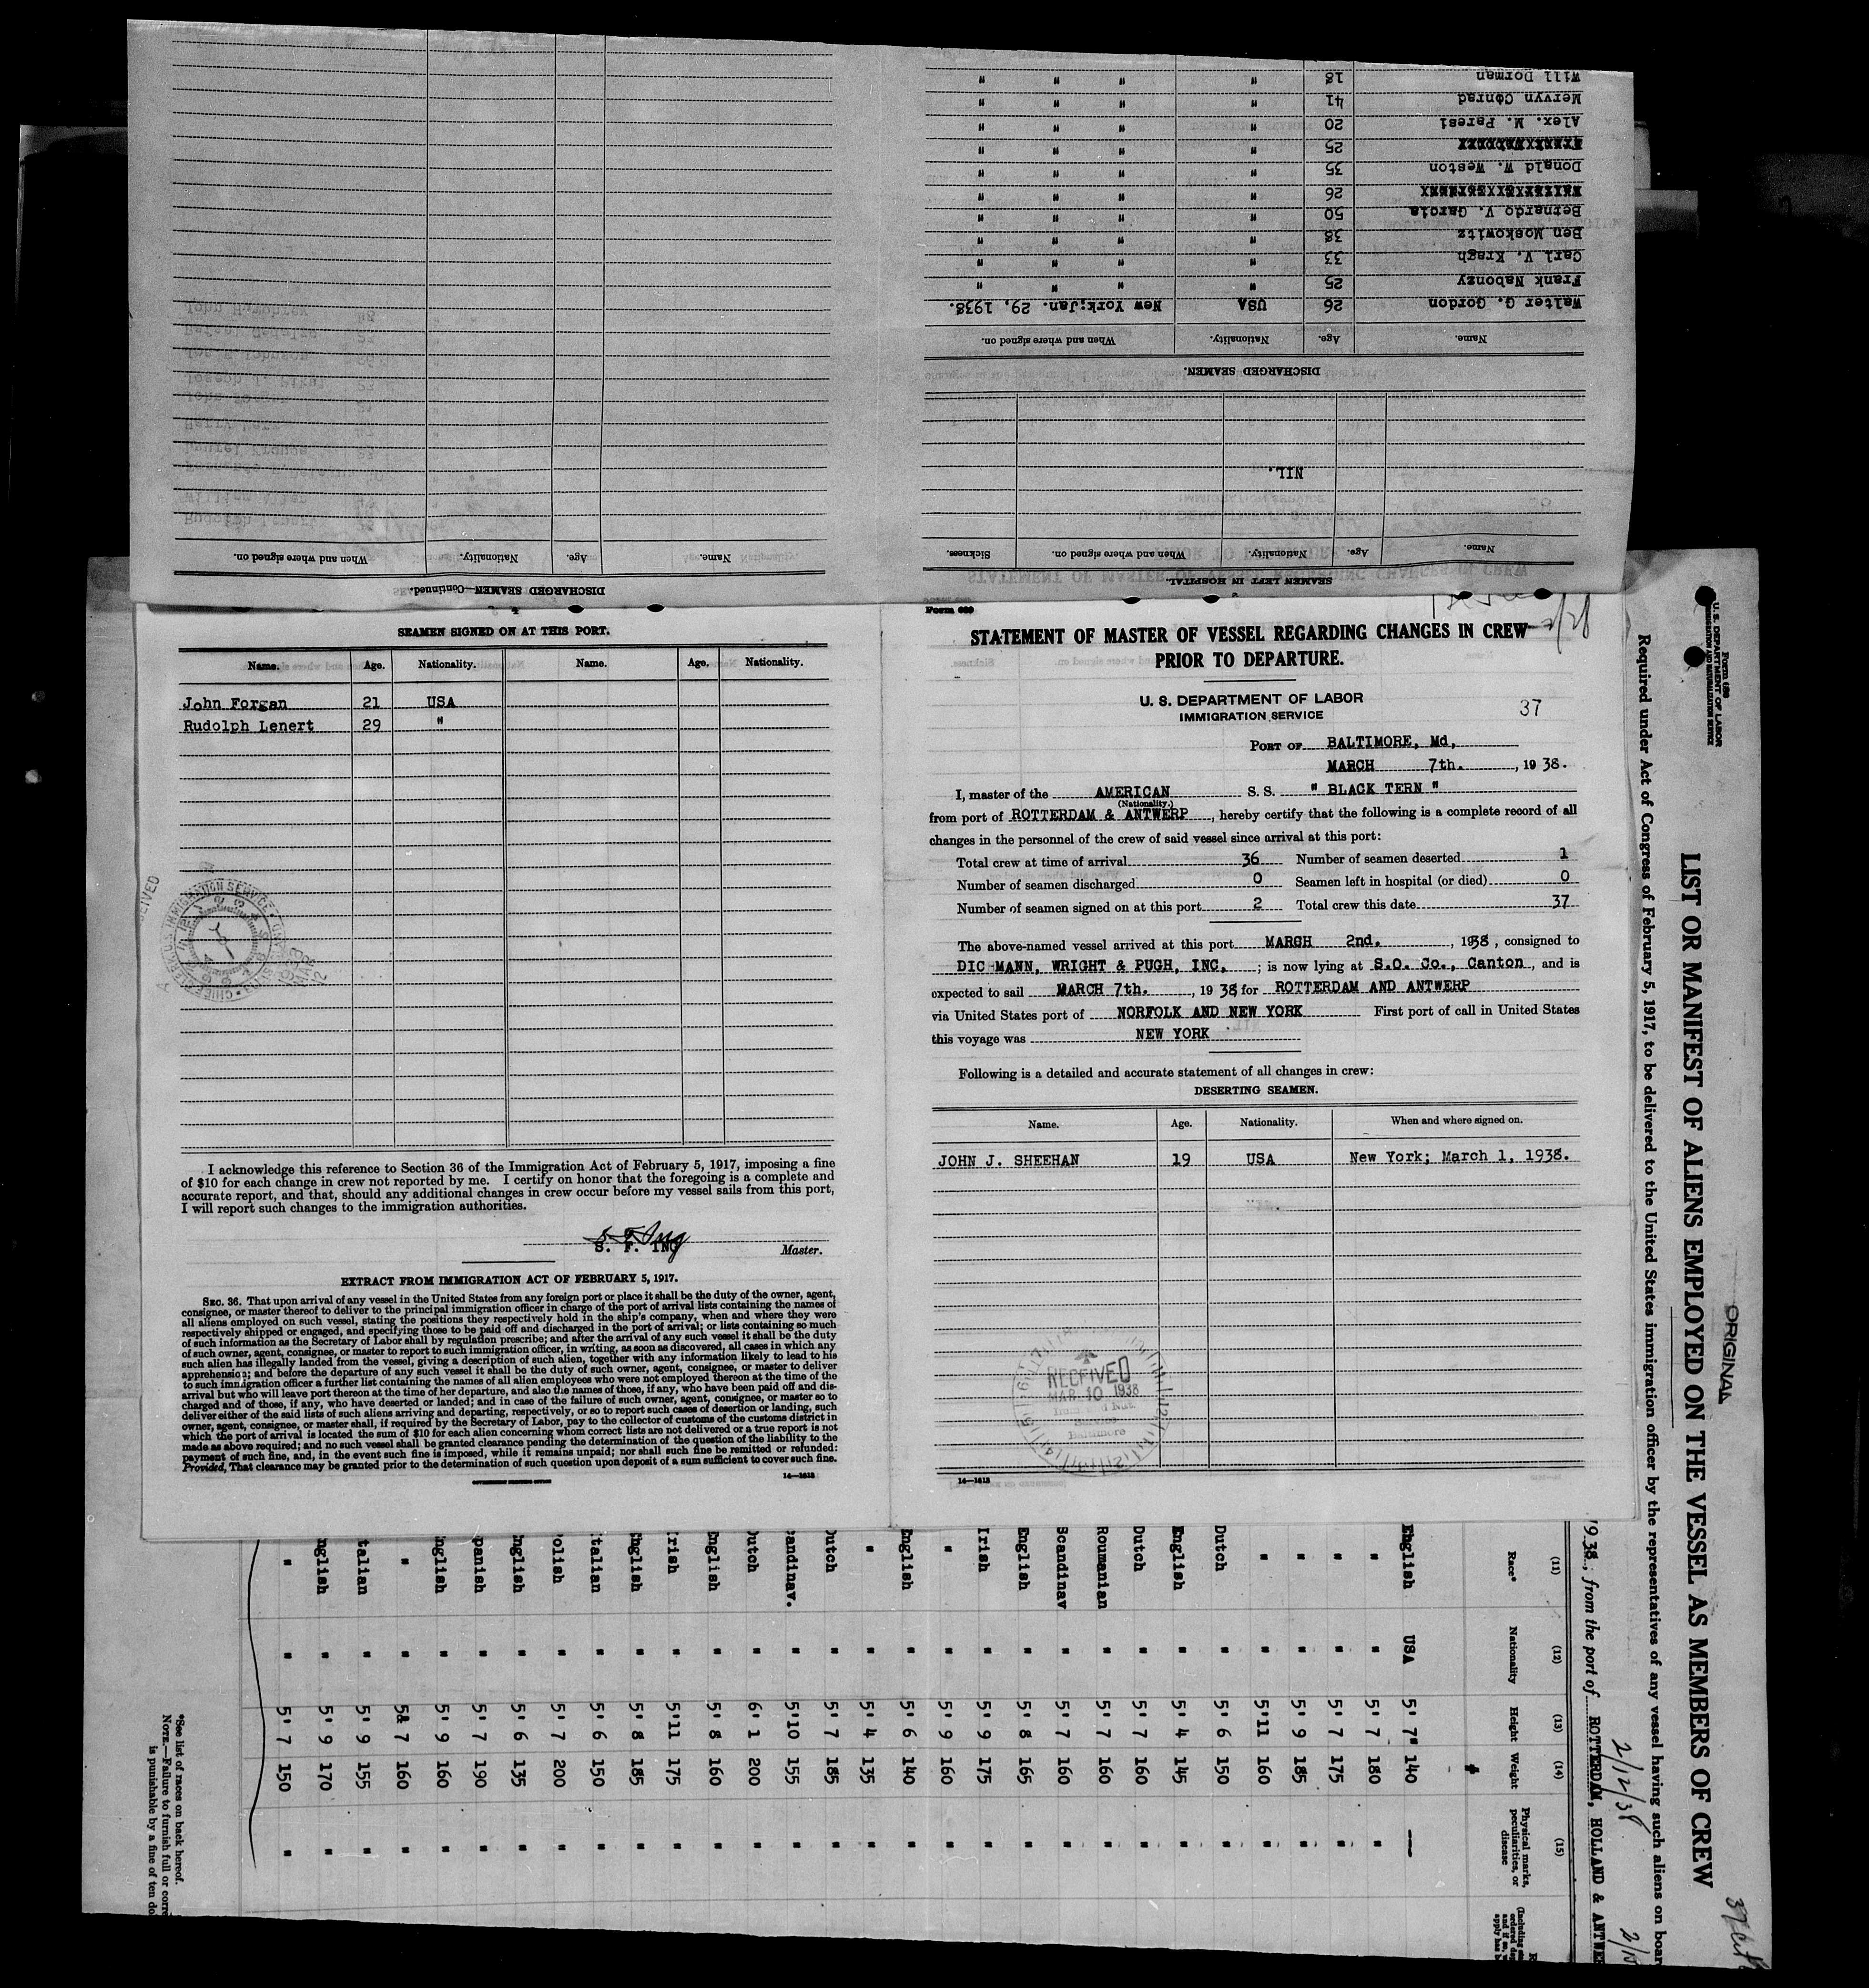 DISCHARGED SEAMEN—Continued.
Name. Age. Nationality. When and where signed on.
SEAMEN LEFT IN HOSPITAL.
Name. Age. Nationality. When and where signed on. Sickness.
NIL.
DISCHARGED SEAMEN.
Name. Age. Nationality. When and where signed on.
Walter G. Gordon 26 USA New York;Jan. 29, 1938.
Frank Nabonzy 25 " " " "
Carl V. Kragh 33 " " " "
Ben Moskowitz 38 " " " "
Bernardo V. Garcia 50 " " " "
26 " " " "
Donald W. Weston 35 " " " "
25 " " " "
Alex. M. Paresi 20 " " " "
Mervyn Conrad 41 " " " "
Will Dorman 18 " " " "
SEAMEN SIGNED ON AT THIS PORT.
Name. Age. Nationality. Name. Age. Nationality.
John Forgan 21 USA
Rudolph Lenert 29 "
I acknowledge this reference to Section 36 of the Immigration Act of February 5, 1917, imposing a fine
of $10 for each change in crew not reported by me. I certify on honor that the foregoing is a complete and
accurate report, and that, should any additional changes in crew occur before my vessel sails from this port,
I will report such changes to the immigration authorities.
S. F. Ing
S. F. ING Master.
EXTRACT FROM IMMIGRATION ACT OF FEBRUARY 5, 1917.
SEC. 36. That upon arrival of any vessel in the United States from any foreign port or place it shall be the duty of the owner, agent,
consignee, or master thereof to deliver to the principal immigration officer in charge of the port of arrival lists containing the names of
all aliens employed on such vessel, stating the positions they respectively hold in the ship's company, when and where they were
respectively shipped or engaged, and specifying those to be paid off and discharged in the port of arrival; or lists containing so much
of such information as the Secretary of Labor shall by regulation prescribe; and after the arrival of any such vessel it shall be the duty
of such owner, agent, consignee, or master to report to such immigration officer, in writing, as soon as discovered, all cases in which any
such alien has illegally landed from the vessel, giving a description of such alien, together with any information likely to lead to his
apprehension; and before the departure of any such vessel it shall be the duty of such owner, agent, consignee, or master to deliver
to such immigration officer a further list containing the names of all alien employees who were not employed thereon at the time of the
arrival but who will leave port thereon at the time of her departure, and also the names of those, if any, who have been paid off and dis-
charged and of those, if any, who have deserted or landed; and in case of the failure of such owner, agent, consignee, or master so to
deliver either of the said lists of such aliens arriving and departing, respectively, or so to report such cases of desertion or landing, such
owner, agent, consignee, or master shall, if required by the Secretary of Labor, pay to the collector of customs of the customs district in
which the port of arrival is located the sum of $10 for each alien concerning whom correct lists are not delivered or a true report is not
made as above required; and no such vessel shall be granted clearance pending the determination of the question of the liability to the
payment of such fine, and, in the event such fine is imposed, while it remains unpaid; nor shall such fine be remitted or refunded:
Provided, That clearance may be granted prior to the determination of such question upon deposit of a sum sufficient to cover such fine.
GOVERNMENT PRINTING OFFICE 14—1613
Form 689
STATEMENT OF MASTER OF VESSEL REGARDING CHANGES IN CREW
PRIOR TO DEPARTURE.
U. S. DEPARTMENT OF LABOR
IMMIGRATION SERVICE
37
PORT OF BALTIMORE, Md,
MARCH 7th. , 1938.
I, master of the AMERICAN S. S. " BLACK TERN "
(Nationality.)
from port of ROTTERDAM & ANTWERP , hereby certify that the following is a complete record of all
changes in the personnel of the crew of said vessel since arrival at this port:
Total crew at time of arrival 36 Number of seamen deserted 1
Number of seamen discharged 0 Seamen left in hospital (or died) 0
Number of seamen signed on at this port 2 Total crew this date 37
The above-named vessel arrived at this port MARCH 2nd. , 1938 , consigned to
DIC MANN, WRIGHT & PUGH, INC, ; is now lying at S.O. Co., Canton , and is
expected to sail MARCH 7th. , 1938 for ROTTERDAM AND ANTWERP
via United States port of NORFOLK AND NEW YORK First port of call in United States
this voyage was NEW YORK
Following is a detailed and accurate statement of all changes in crew:
DESERTING SEAMEN.
Name. Age. Nationality. When and where signed on.
JOHN J. SHEEHAN 19 USA New York; March 1, 1938.
RECEIVED
MAR 10 1938
Baltimore
14—1613
Form 689
U. S. DEPARTMENT OF LABOR
IMMIGRATION AND NATURALIZATION SERVICE
ORIGINAL
LIST OR MANIFEST OF ALIENS EMPLOYED ON THE VESSEL AS MEMBERS OF CREW
Required under Act of Congress of February 5, 1917, to be delivered to the United States immigration officer by the representatives of any vessel having such aliens on boar
2/12/38
1938, from the port of ROTTERDAM, HOLLAND & ANTWE
(11) (12) (13) (14) (15)
Race* Nationality Height Weight Physical marks, peculiarities, or disease
English USA 5' 7" 140 ---
" " 5' 7 180 "
" " 5' 7 175 "
" " 5' 9 185 "
" " 5'11 160 "
Dutch " 5' 6 150 "
English " 5' 4 145 "
Dutch " 5' 7 160 "
Roumanian " 5' 7 160 "
Scandinav " 5' 7 160 "
English " 5' 8 165 "
Irish " 5' 9 175 "
" " 5' 9 160 "
English " 5' 6 140 "
" " 5' 4 135 "
Dutch " 5' 7 185 "
candinav. " 5'10 155 "
Dutch " 6' 1 200 "
English " 5' 8 160 "
Irish " 5'11 175 "
English " 5' 8 185 "
talian " 5' 6 150 "
olish " 5' 7 200 "
nglish " 5' 6 135 "
panish " 5' 7 190 "
nglish " 5' 9 160 "
" " 5& 7 160 "
talian " 5' 9 155 "
nglish " 5' 9 170 "
" " 5' 7 150 "
*See list of races on back hereof.
NOTE.—Failure to furnish full or corre
is punishable by a fine of ten do